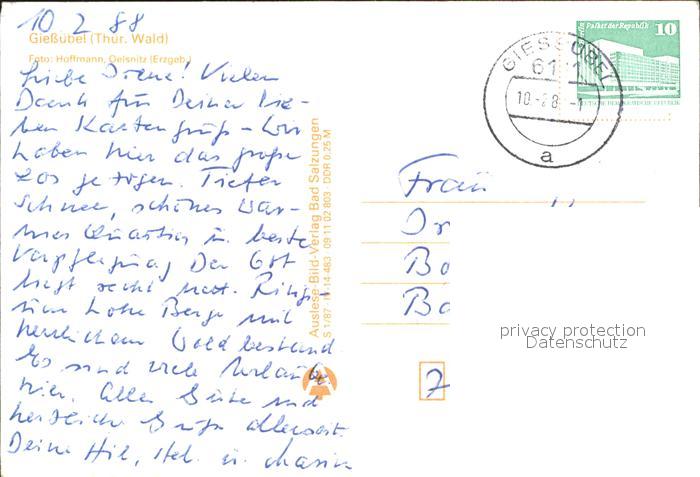 10 2 88
Gießübel (Thür. Wald)
Foto: Hoffmann, Oelsnitz (Erzgeb.)
Liebe Irene! Vielen
Dank für Deinen lie-
ben Kartengruß – Wir
haben hier das große
Los gezogen. Tiefer
Schnee, schönes war-
mes Quartier u. beste
Verpflegung Der Ort
liegt recht nett. Rings-
um hohe Berge mit
herrlichem Waldbestand
Es sind viele Urlauber
hier. Alles Gute und
herzliche Grüße allerseits.
Deine Hil, Hel. u.
Auslese Bild-Verlag Bad Salzungen
S 1/87 14-483 09 11 02 803 DDR 0,25 M
Palast der Republik
10
DEUTSCHE DEMOKRATISCHE REPUBLIK
GIESSÜBEL
6111
10.-2.8
a
Frau
Ir
Bo
Ba
7
privacy protection
Datenschutz